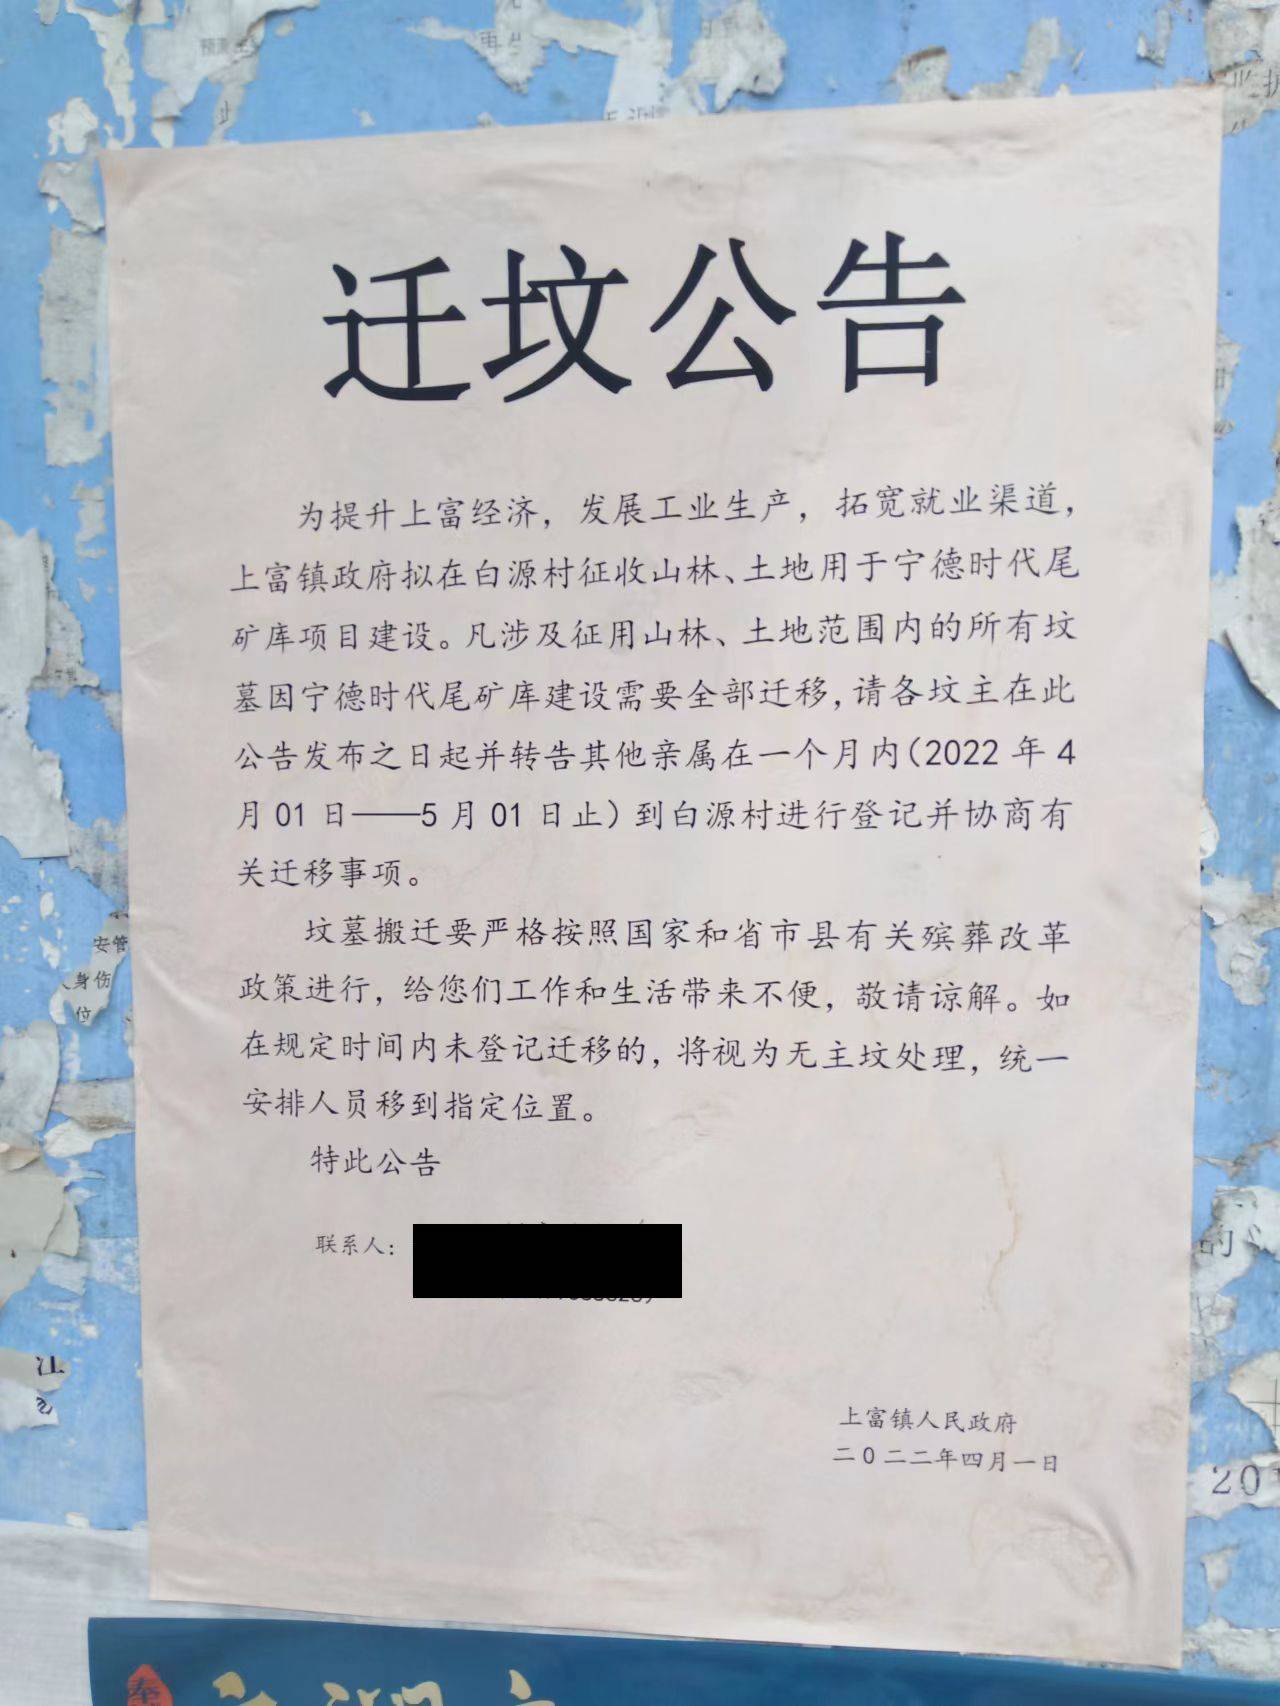 预
迁坟公告
为提升上富经济，发展工业生产，拓宽就业渠道，
上富镇政府拟在白源村征收山林、土地用于宁德时代尾
矿库项目建设。凡涉及征用山林、土地范围内的所有坟
墓因宁德时代尾矿库建设需要全部迁移，请各坟主在此
公告发布之日起并转告其他亲属在一个月内（2022 年 4
月 01 日——5 月 01 日止）到白源村进行登记并协商有
关迁移事项。
坟墓搬迁要严格按照国家和省市县有关殡葬改革
政策进行，给您们工作和生活带来不便，敬请谅解。如
在规定时间内未登记迁移的，将视为无主坟处理，统一
安排人员移到指定位置。
特此公告
联系人：
上富镇人民政府
二0二二年四月一日
安管
身伤
位
江
的
20